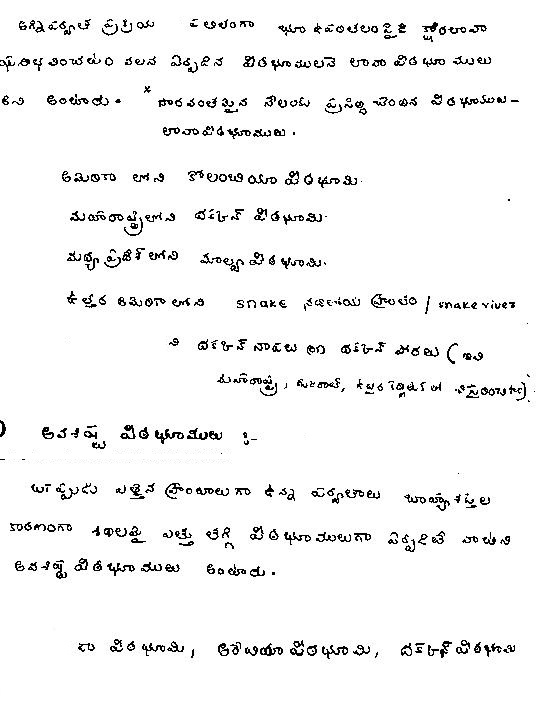 అగ్నిపర్వత ప్రక్రియ ఫలితంగా భూ ఉపరితలంపైకి క్షారలావా
ప్రవహించడం వలన ఏర్పడిన పీఠభూములనే లావా పీఠభూములు
అని అంటారు. * సారవంతమైన నేలలకు ప్రసిద్ధి చెందిన పీఠభూములు -
లావాపీఠభూములు.
అమెరికా లోని కోలంబియా పీఠభూమి.
మహారాష్ట్రలోని దక్కన్ పీఠభూమి.
మధ్యప్రదేశ్ లోని మాల్వా పీఠభూమి.
ఉత్తర అమెరికా లోని snake నదీలోయ ప్రాంతం / snake river
ని దక్కన్ నాపలు (లేదా) దక్కన్ పొరలు ( ఇవి
మహారాష్ట్ర, గుజరాత్,
అవశిష్ట పీఠభూములు :-
ఒకప్పుడు ఎత్తైన ప్రాంతాలుగా ఉన్న పర్వతాలు బాహ్యశక్తుల
కారణంగా శిథిలమై ఎత్తు తగ్గి పీఠభూములుగా ఏర్పడితే వాటిని
అవశిష్ట పీఠభూములు అంటారు.
పీఠభూమి, అరేబియా పీఠభూమి, దక్కన్ పీఠభూమి